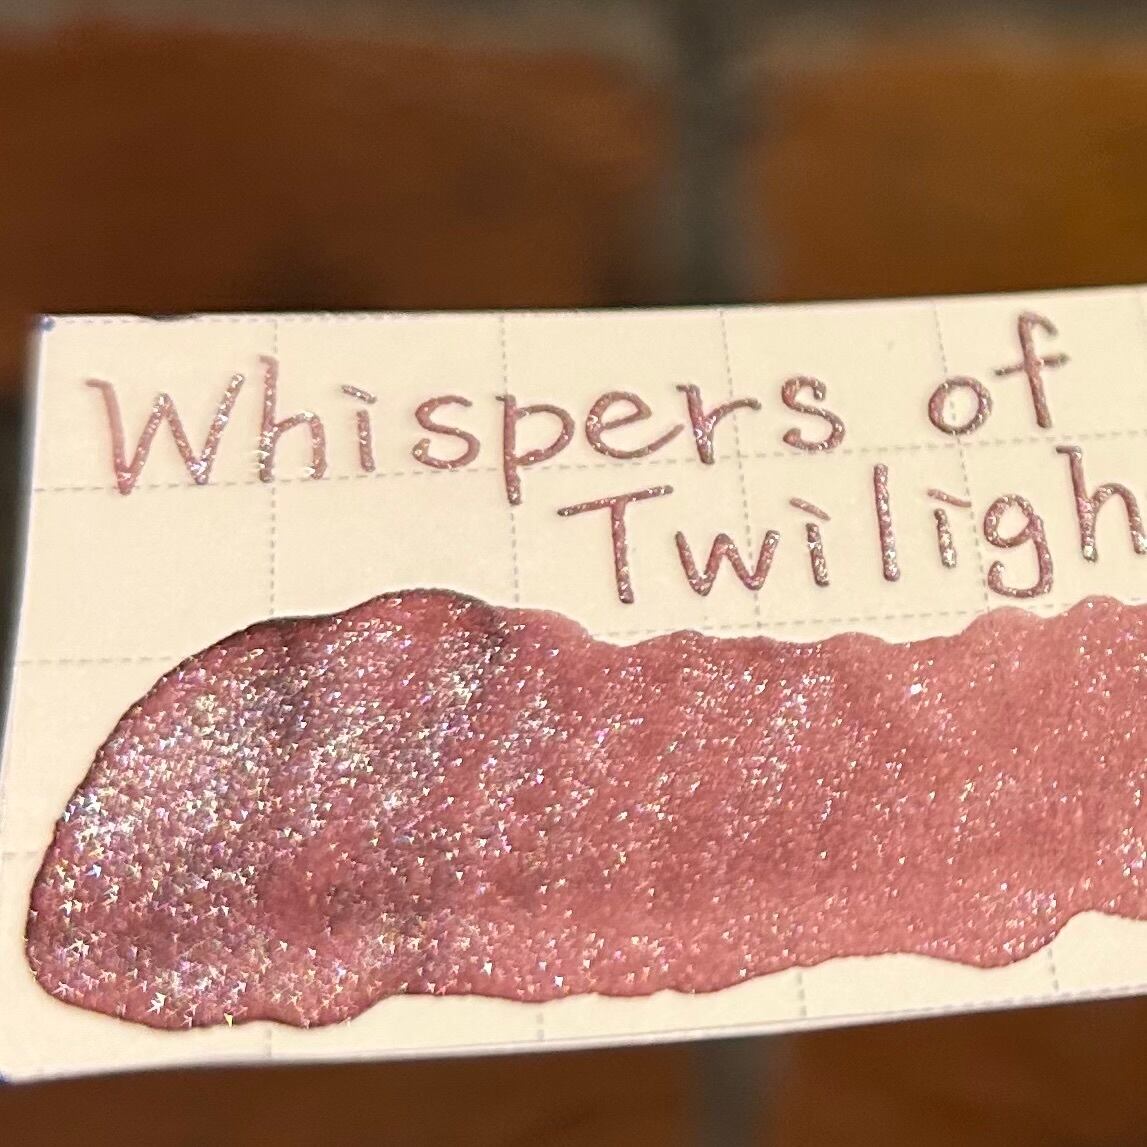 Whispers of
Twiligh